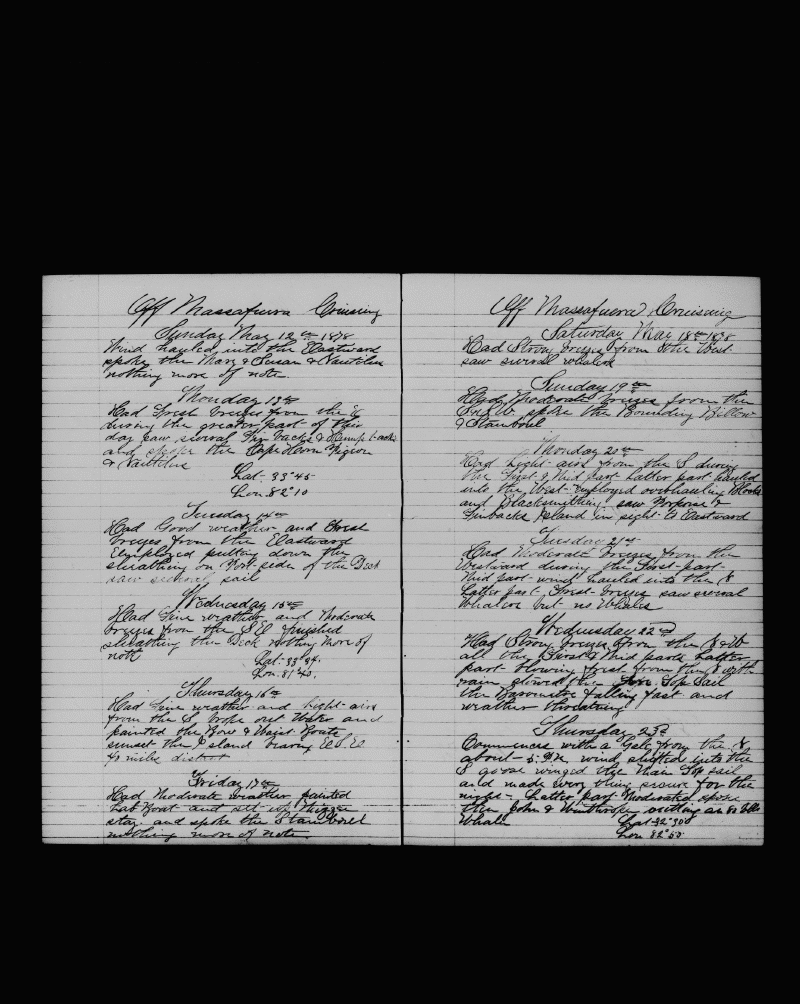 Off Massafuera Cruising
Sunday May 12th 1878
Wind hauled into the Eastward
spoke the Mary & Susan & Nautilus
nothing more of note
Monday 13th
Had Fresh breezes from the E
during the greater part of this
day saw several Fin backs & Humpbacks
and spoke the Cape Horn Pigeon
& Nautilus
Lat. 33°45
Lon 82°10
Tuesday 14th
Had Good weather and Fresh
breezes from the Eastward
Employed putting down the
sheathing on Port side of the Deck
saw several sail
Wednesday 15th
Had Fine weather and Moderate
breezes from the SE finished
sheathing the Deck nothing More of
note
Lat. 33°34.
Lon. 81°40.
Thursday 16th
Had Fine weather and Light airs
from the S broke out Water and
painted the Bow & Waist Boats
sunset the Island bearing E.S.E
40 miles distant
Friday 17th
Had Moderate weather painted
Lab Boat and set up Mizzen
stay and spoke the Stamboul
nothing more of note
Off Massafuera Cruising
Saturday May 18th 1878
Had Strong breezes from the West
saw several whalers
Sunday 19th
Had Moderate breezes from the
spoke the Bounding Billow
& Stamboul
Monday 20th
Had Light airs from the S during
the First & Mid part Latter part hauled
into the West Employed overhauling Blocks
and Blacksmithing saw Porpoise &
Finbacks Island in sight to Eastward
Tuesday 21st
Had Moderate breezes from the
Westward during the First part
Mid part wind hauled into the N
Latter part Fresh breezes saw several
Whalers but no Whales
Wednesday 22nd
Had Strong breezes from the
all the First & Mid parts Latter
part blowing fresh from the N with
rain clewed the Fore Top Sail
the Barometer falling fast and
weather threatning
Thursday 23d
Commences with a Gale from the N
about 5 wind shifted into the
S goose winged the Main Top sail
and made everything secure for the
night Latter part Moderated spoke
the John & Winthrop cutting an 80 bbl
Whale
Lat 32°30
Lon 82°50